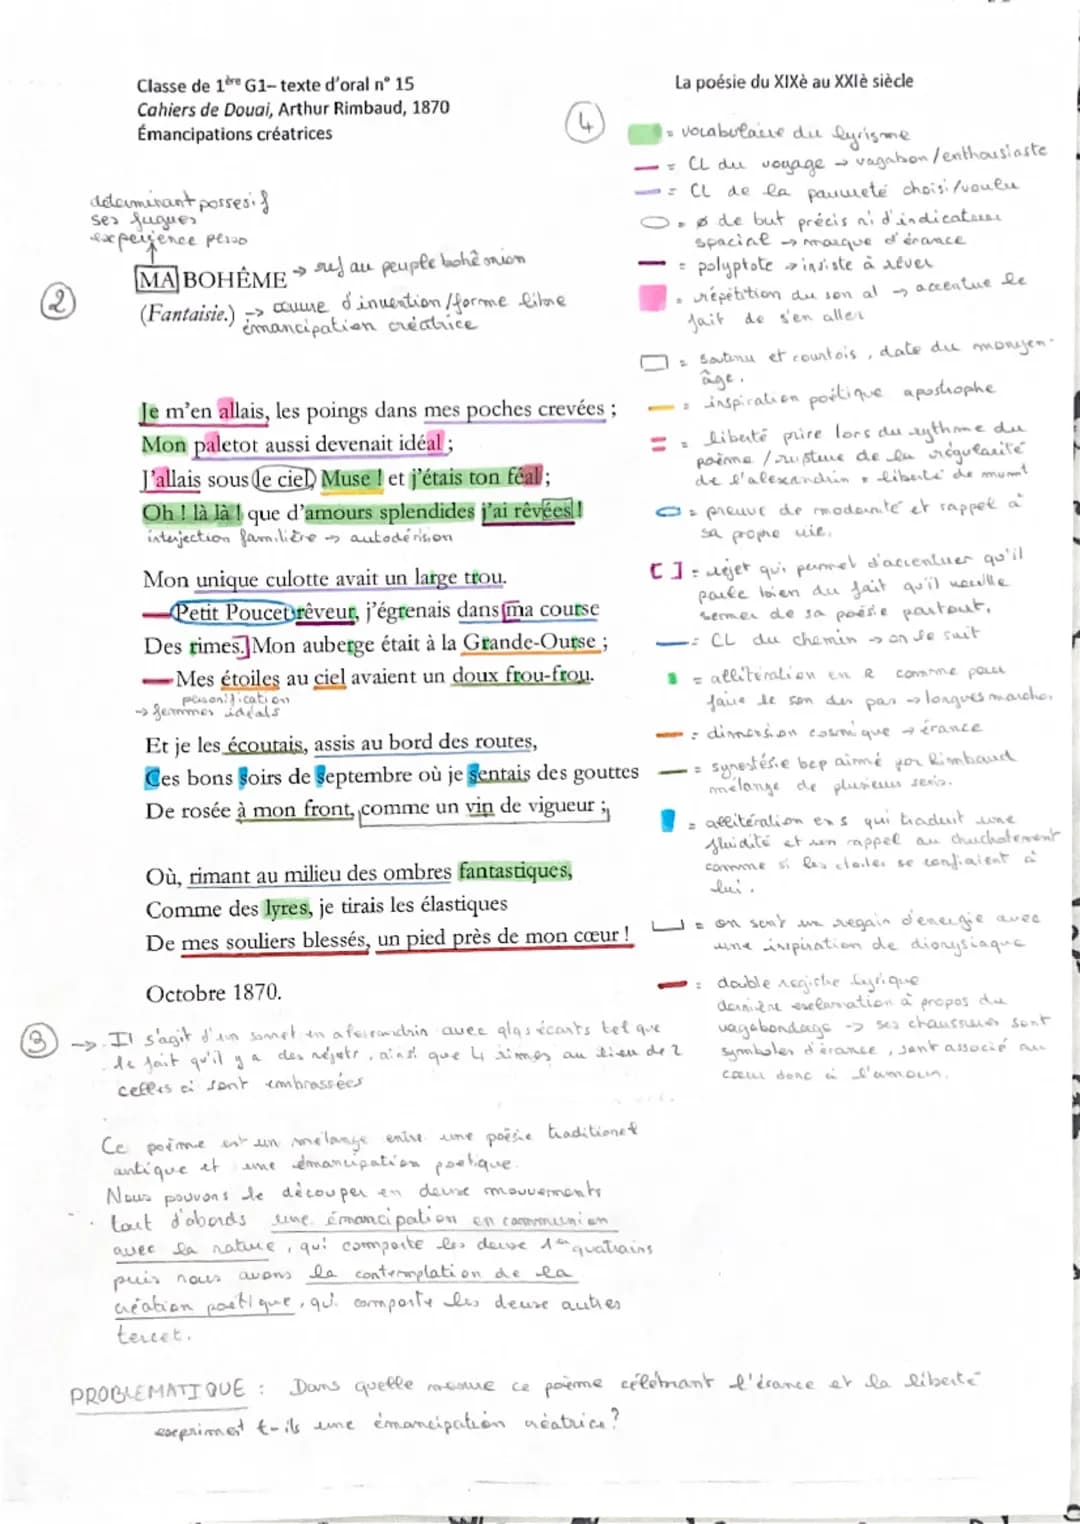 Classe de 1ère G1– texte d'oral n° 15
Cahiers de Douai, Arthur Rimbaud, 1870
Émancipations créatrices
La poésie du XIXè au XXIè siècle
déterminant possessif
ses fugues
experience perso
2
MA BOHÊME → ref au peuple bohêmion
(Fantaisie.) → œuvre d'invention/forme libre
émancipation créatrice
Je m'en allais, les poings dans mes poches crevées ;
Mon paletot aussi devenait idéal ;
J'allais sous le ciel, Muse ! et j'étais ton féal ;
Oh ! là là ! que d'amours splendides j'ai rêvées !
interjection familière → autodérision
Mon unique culotte avait un large trou.
—Petit Poucet rêveur, j'égrenais dans ma course
Des rimes. Mon auberge était à la Grande-Ourse ;
—Mes étoiles au ciel avaient un doux frou-frou.
personification
→ femmes idéals
Et je les écoutais, assis au bord des routes,
Ces bons soirs de septembre où je sentais des gouttes
De rosée à mon front, comme un vin de vigueur ;
Où, rimant au milieu des ombres fantastiques,
Comme des lyres, je tirais les élastiques
De mes souliers blessés, un pied près de mon cœur !
Octobre 1870.
4
= vocabulaire du lyrisme
= CL du voyage → vagabon/enthousiaste
= CL de la pauvreté choisi/voulu
= ø de but précis ni d'indicateur
spacial → marque d'érance
= polyptote → insiste à rêver
= répétition du son al → accentue le
fait de s'en aller
= soutenu et courtois, date du moyen-
âge.
= inspiration poétique apostrophe
= liberté prise lors du rythme du
poème / rupture de la régularité
de l'alexandrin = liberté de
= preuve de modernité et rappel à
sa propre vie.
[ ] = rejet qui permet d'accentuer qu'il
parle bien du fait qu'il veuille
semer de sa poésie partout.
= CL du chemin → on le suit
= allitération en R comme pour
faire le son des pas → longues marches
= dimension cosmique → érance
= synestésie bcp aimé par Rimbaud
mélange de plusieurs sens.
= allitération en s qui traduit une
fluidité et un rappel au chuchotement
comme si les étoiles se confiaient à
lui.
= on sent un regain d'énergie avec
une inspiration de dionysiaque
= double registre lyrique
dernière exclamation à propos du
vagabondage → ses chaussures sont
symboles d'érance, sont associé au
cœur donc à l'amour.
3 → Il s'agit d'un sonnet en alexandrin avec qlqs écarts tel que
le fait qu'il y a des rejets, ainsi que 4 rimes au lieu de 2
celles ci sont embrassées
Ce poème est un mélange entre une poésie traditionel
antique et une émancipation poétique.
Nous pouvons le découper en deux mouvements
tout d'abords une émancipation en communion
avec la nature, qui comporte les deux 1er quatrains
puis nous avons la contemplation de la
création poétique, qui comporte les deux autres
tercet.
PROBLEMATIQUE : Dans quelle mesure ce poème célébrant l'érance et la liberté
exprimet t-ils une émancipation créatrice ?